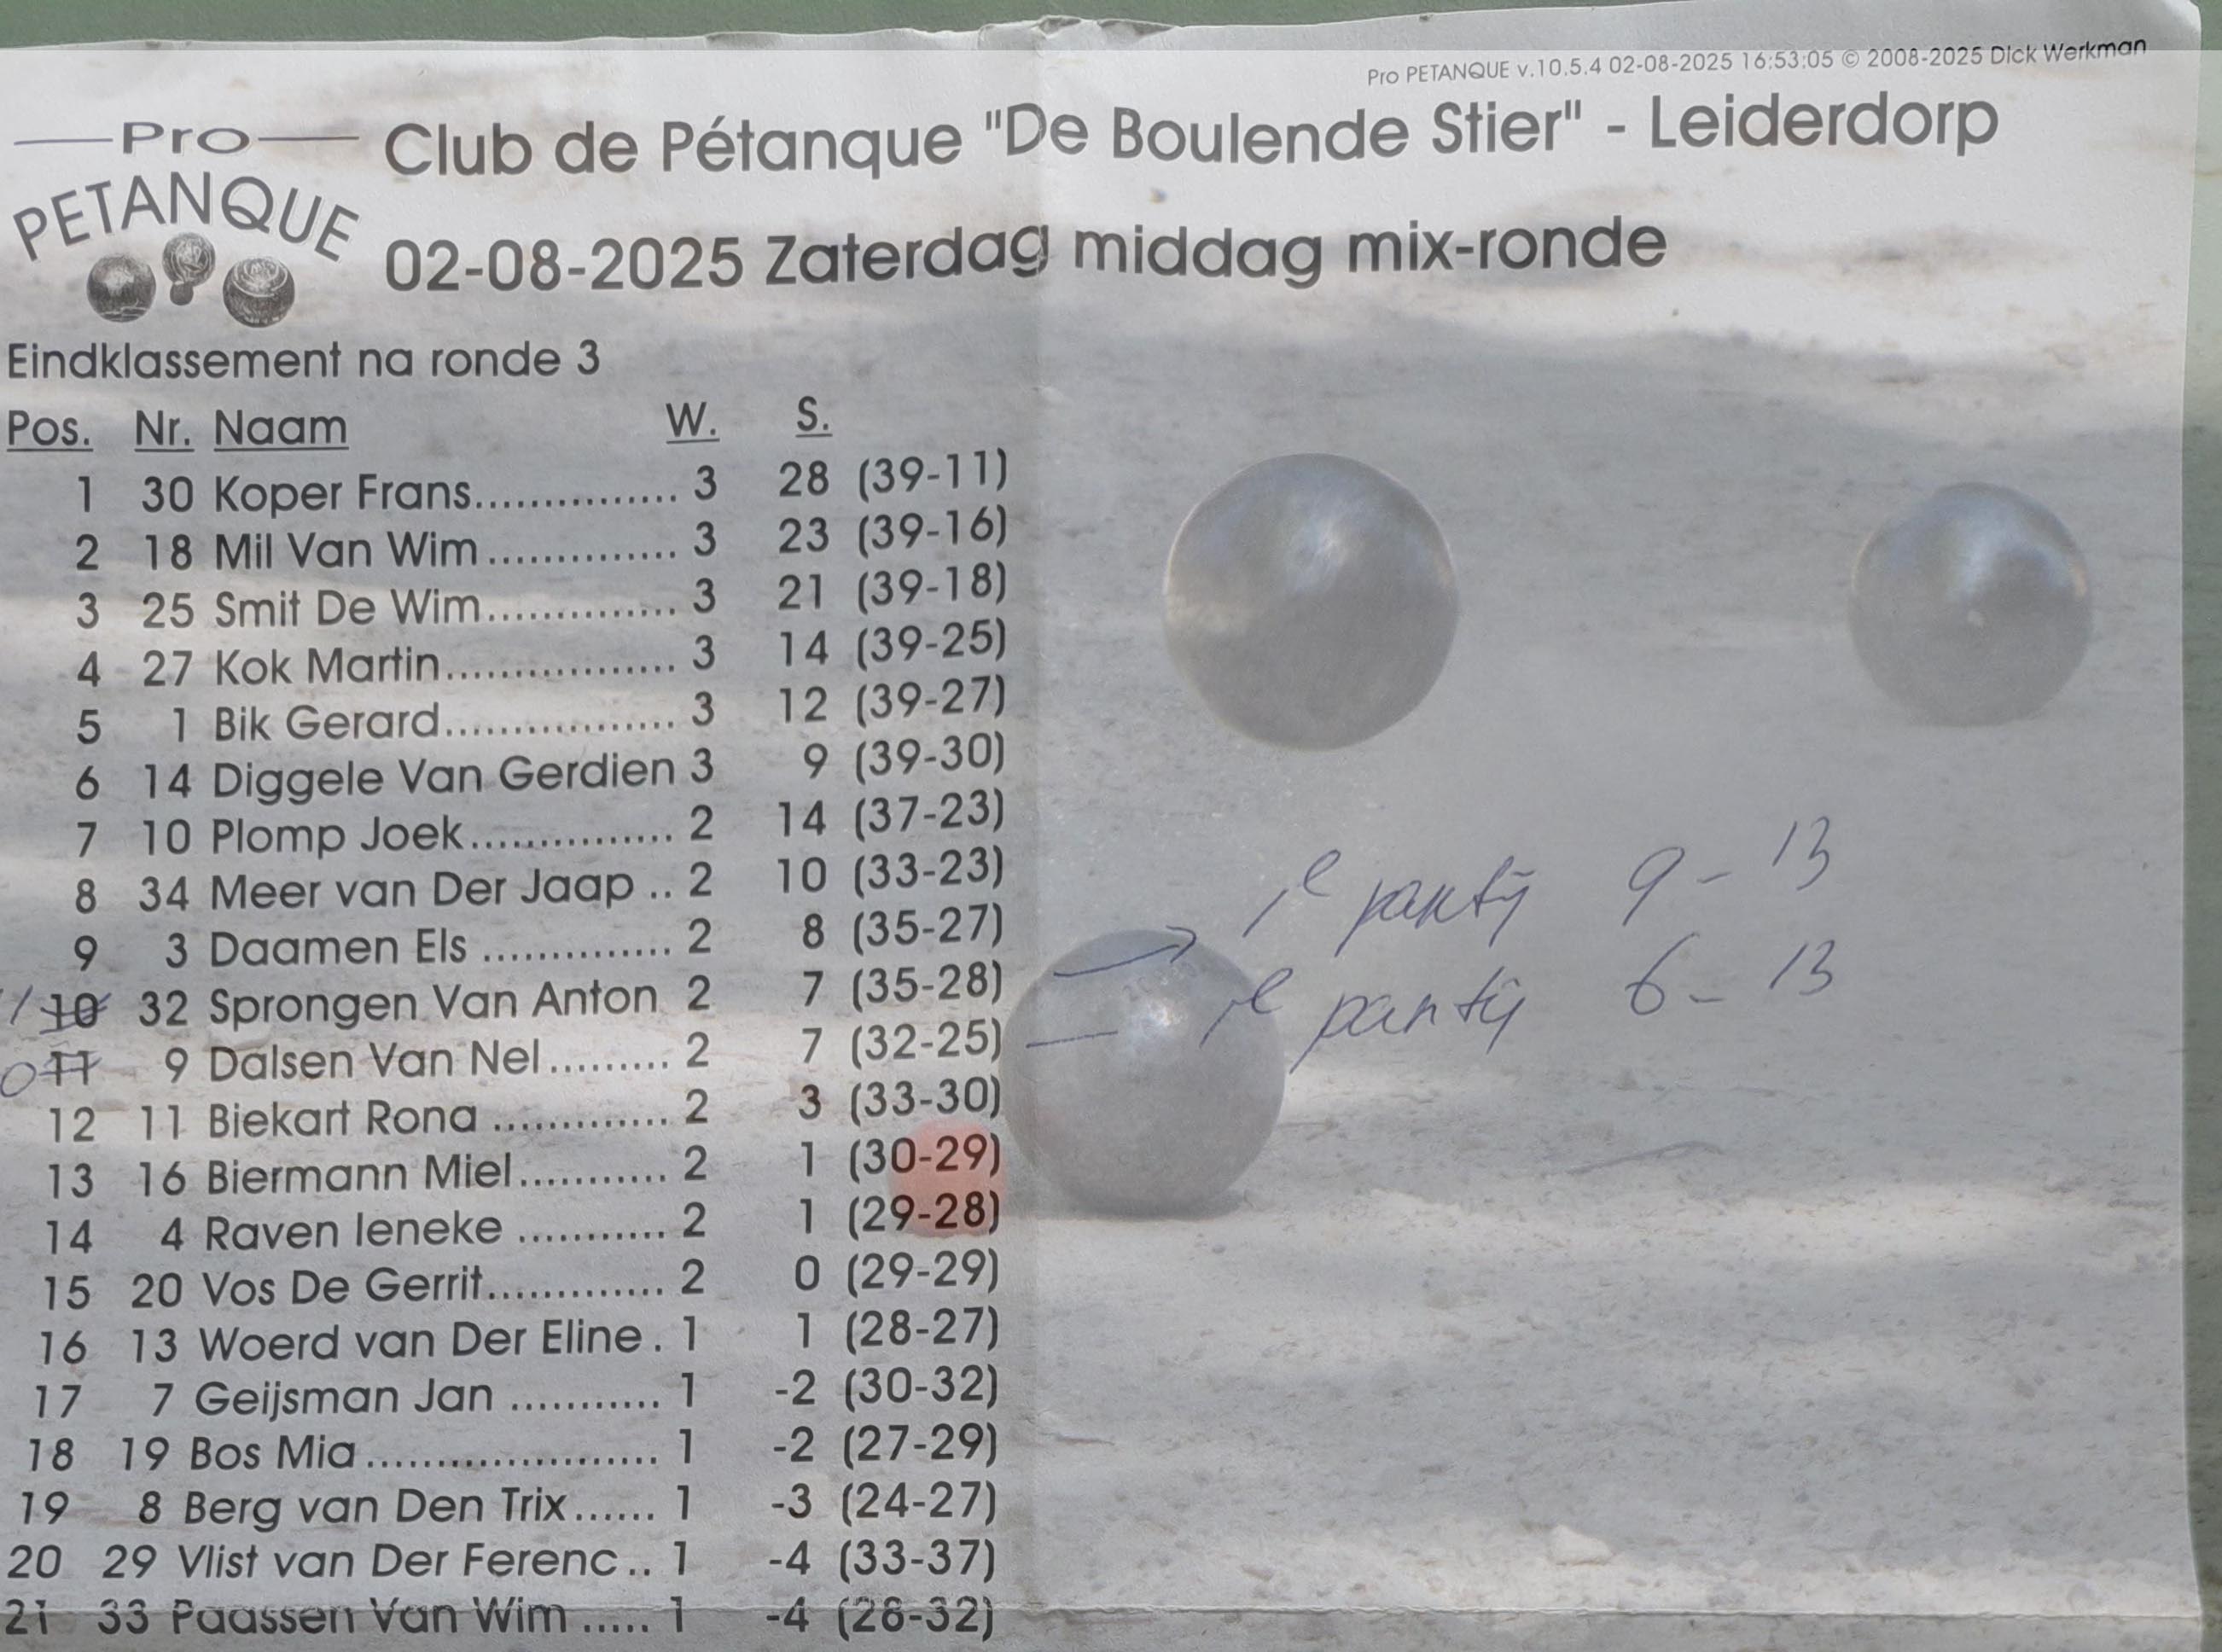 Pro PETANQUE v.10.5.4 02-08-2025 16:53:05 © 2008-2025 Dick Werkman
Pro
PETANQUE
Club de Pétanque "De Boulende Stier" - Leiderdorp
02-08-2025 Zaterdag middag mix-ronde
Eindklassement na ronde 3
Pos. Nr. Naam W. S.
1 30 Koper Frans................ 3 28 (39-11)
2 18 Mil Van Wim............... 3 23 (39-16)
3 25 Smit De Wim............... 3 21 (39-18)
4 27 Kok Martin.................. 3 14 (39-25)
5 1 Bik Gerard.................. 3 12 (39-27)
6 14 Diggele Van Gerdien 3 9 (39-30)
7 10 Plomp Joek................ 2 14 (37-23)
8 34 Meer van Der Jaap .. 2 10 (33-23)
9 3 Daamen Els ............... 2 8 (35-27)
10 32 Sprongen Van Anton 2 7 (35-28) 1e partij 9 - 13
11 9 Dalsen Van Nel......... 2 7 (32-25) 1e partij 6 - 13
12 11 Biekart Rona ............. 2 3 (33-30)
13 16 Biermann Miel........... 2 1 (30-29)
14 4 Raven Ieneke ........... 2 1 (29-28)
15 20 Vos De Gerrit............. 2 0 (29-29)
16 13 Woerd van Der Eline . 1 1 (28-27)
17 7 Geijsman Jan ........... 1 -2 (30-32)
18 19 Bos Mia..................... 1 -2 (27-29)
19 8 Berg van Den Trix...... 1 -3 (24-27)
20 29 Vlist van Der Ferenc.. 1 -4 (33-37)
21 33 Paassen Van Wim ..... 1 -4 (28-32)